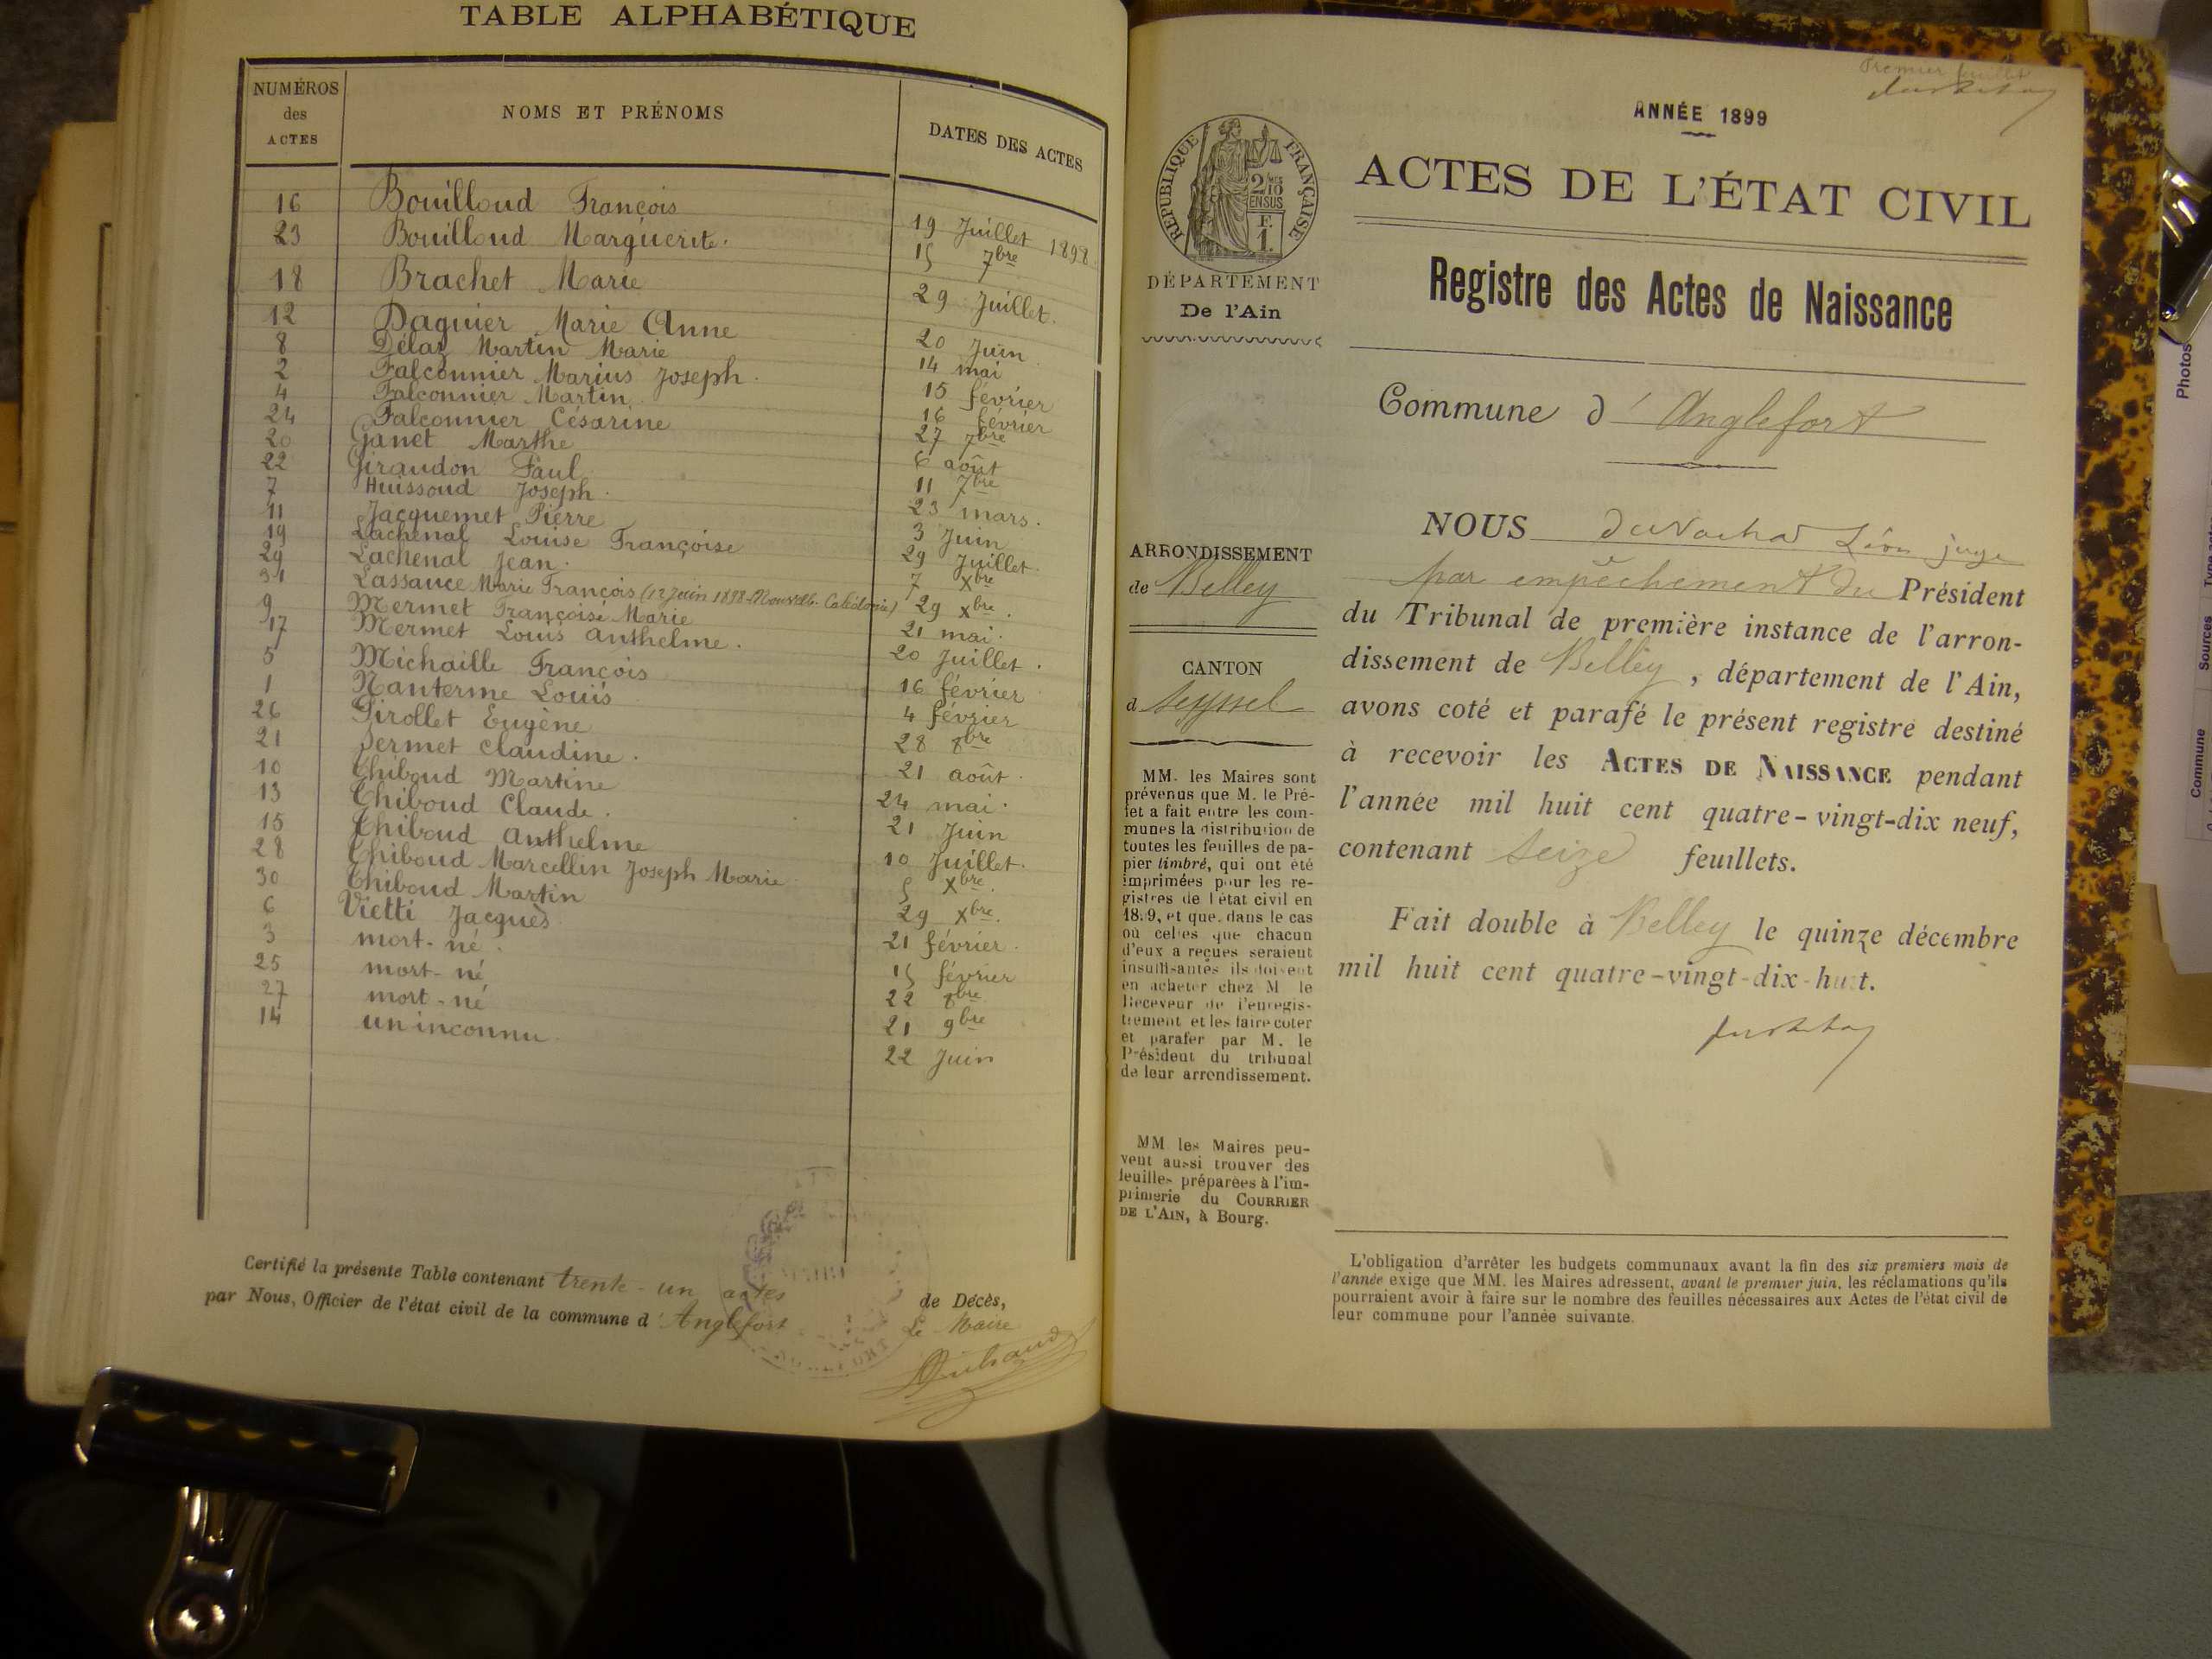 TABLE ALPHABÉTIQUE
NUMÉROS des ACTES
NOMS ET PRÉNOMS
DATES DES ACTES
16 Bouilloud François 19 Juillet 1898
23 Bouilloud Marguerite. 15 7bre
18 Brachet Marie 29 Juillet.
12 Daguier Marie Anne 20 Juin
8 Délaz Martin Marie 14 mai
2 Falconnier Marius Joseph. 15 février
4 Falconnier Martin 16 février
24 Falconnier Césarine 27 7bre
20 Ganet Marthe 6 août
22 Giraudon Paul 11 7bre
7 Huissoud Joseph. 23 mars.
11 Jacquemet Pierre 3 Juin
19 Lachenal Louise Françoise 29 Juillet.
29 Lachenal Jean. 7 Xbre
31 Lassauce Marie François (12 Juin 1898 Nouvelle-Calédonie) 29 xbre.
9 Mermet Françoise Marie 21 mai.
17 Mermet Louis Anthelme. 20 Juillet.
5 Michaille François 16 février
1 Nanterme Louis 4 février
26 Pirollet Eugène 28 8bre
21 Sermet Claudine. 21 août.
10 Thiboud Martine 24 mai.
13 Thiboud Claude. 21 Juin
15 Thiboud Anthelme 10 Juillet.
28 Thiboud Marcellin Joseph Marie 5 Xbre.
30 Thiboud Martin 29 Xbre.
6 Vietti Jacques 21 février.
3 mort-né. 15 février
25 mort-né 22 8bre
27 mort-né 21 9bre
14 un inconnu 22 Juin
Certifié la présente Table contenant trente-un actes de Décès,
par Nous, Officier de l'état civil de la commune d'Anglefort
Le Maire
Premier feuillet
ANNÉE 1899
RÉPUBLIQUE FRANÇAISE
ACTES DE L'ÉTAT CIVIL
DÉPARTEMENT
De l'Ain
Registre des Actes de Naissance
Commune d'Anglefort
ARRONDISSEMENT
de Belley
CANTON
d Seyssel
MM. les Maires sont
prévenus que M. le Pré-
fet a fait entre les com-
munes la distribution de
toutes les feuilles de pa-
pier timbré, qui ont été
imprimées pour les re-
gistres de l'état civil en
1899, et que, dans le cas
où celles que chacun
d'eux a reçues seraient
insuffisantes ils doivent
en acheter chez M. le
Receveur de l'enregis-
trement et les faire coter
et parafer par M. le
Président du tribunal
de leur arrondissement.
MM les Maires peu-
vent aussi trouver des
feuilles préparées à l'im-
primerie du COURRIER
DE L'AIN, à Bourg.
NOUS Léon juge
par empêchement du Président
du Tribunal de première instance de l'arron-
dissement de Belley, département de l'Ain,
avons coté et parafé le présent registre destiné
à recevoir les ACTES DE NAISSANCE pendant
l'année mil huit cent quatre-vingt-dix neuf,
contenant Seize feuillets.
Fait double à Belley le quinze décembre
mil huit cent quatre-vingt-dix-huit.
L'obligation d'arrêter les budgets communaux avant la fin des six premiers mois de
l'année exige que MM. les Maires adressent, avant le premier juin, les réclamations qu'ils
pourraient avoir à faire sur le nombre des feuilles nécessaires aux Actes de l'état civil de
leur commune pour l'année suivante.
Photos
Sources
Commune